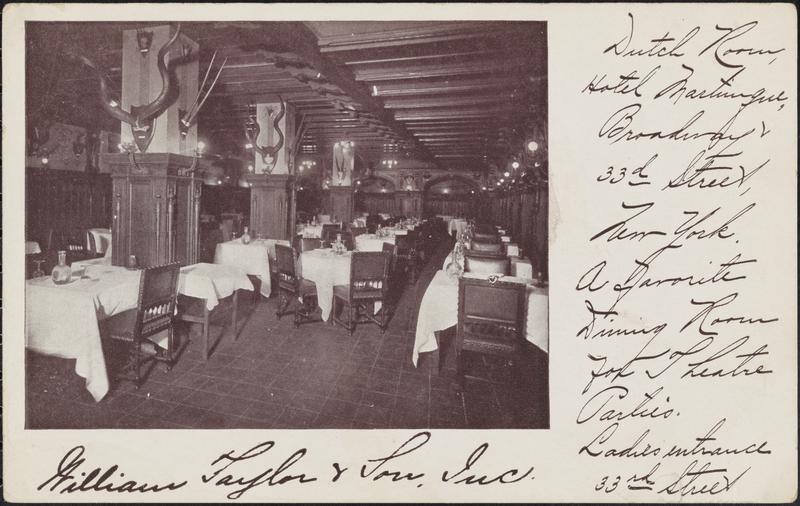 Dutch Room,
Hotel Martinque,
Broadway &
33d Street,
New York.
A Favorite
Dining Room
for Theatre
Parties.
Ladies entrance
33rd Street
William Taylor & Son, Inc.